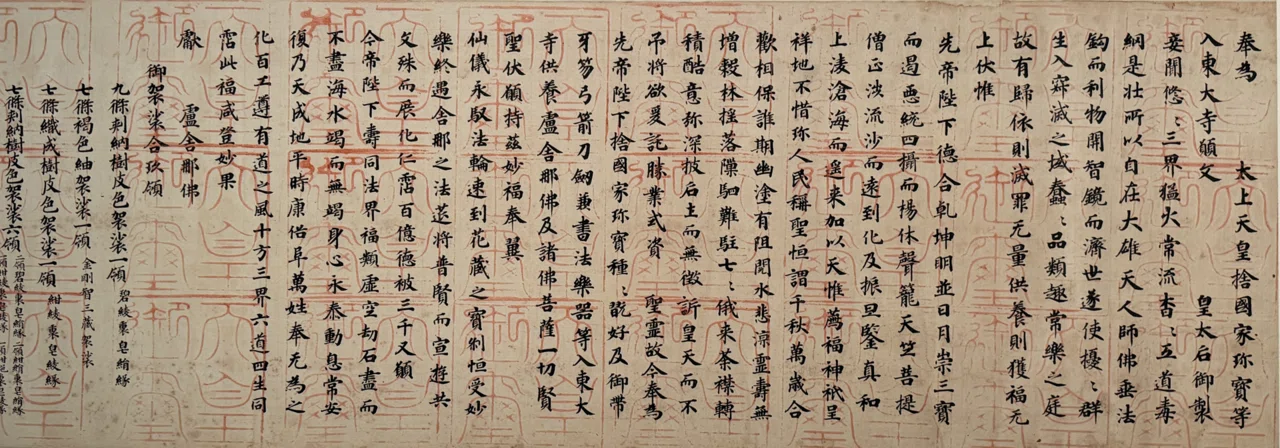 奉為 太上天皇捨國家珎寶等
入東大寺願文 皇太后御製
妾聞悠〻三界猛火常流杳〻五道毒
網是壯所以自在大雄天人師佛垂法
鈎而利物開智鏡而濟世遂使擾〻群
生入寂滅之域蠢〻品類趣常樂之庭
故有歸依則滅罪无量供養則獲福无
上伏惟
先帝陛下德合乹坤明並日月崇三寶
而遏惡統四攝而楊休聲籠天竺菩提
僧正渉流沙而遠到化及振旦鑒真和
上凌滄海而遥来加以天惟薦福神祇呈
祥地不惜珎人民稱聖恒謂千秋萬歳合
歡相保誰期幽塗有阻閱水悲涼靈壽無
增穀林揺落隟駟難駐七〻俄来荼襟轉
積酷意弥深披后土而無徴訴皇天而不
吊將欲爰託勝業式資 聖靈故今奉為
先帝陛下捨國家珎寶種〻翫好及御帶
牙笏弓箭刀劒兼書法樂器等入東大
寺供養盧舍那佛及諸佛菩薩一切賢
聖伏願持茲妙福奉翼
仙儀永馭法輪速到花藏之寶刹恒受妙
樂終遇舍那之法莚將普賢而宣遊共
文殊而展化仁霑百億德被三千又願
今帝陛下壽同法界福類虛空劫石盡而
不盡海水竭而無竭身心永泰動息常安
復乃天成地平時康俗阜萬姓奉无為之
化百工遵有道之風十方三界六道四生同
霑此福咸登妙果
獻 盧舍那佛
御袈裟合玖領
九條刺納樹皮色袈裟一領 碧綾裏皂䌷緣
七條褐色紬袈裟一領 金剛智三藏袈裟
七條織成樹皮色袈裟一領 紺綾裏皂綾緣
七條刺納樹皮色袈裟六領